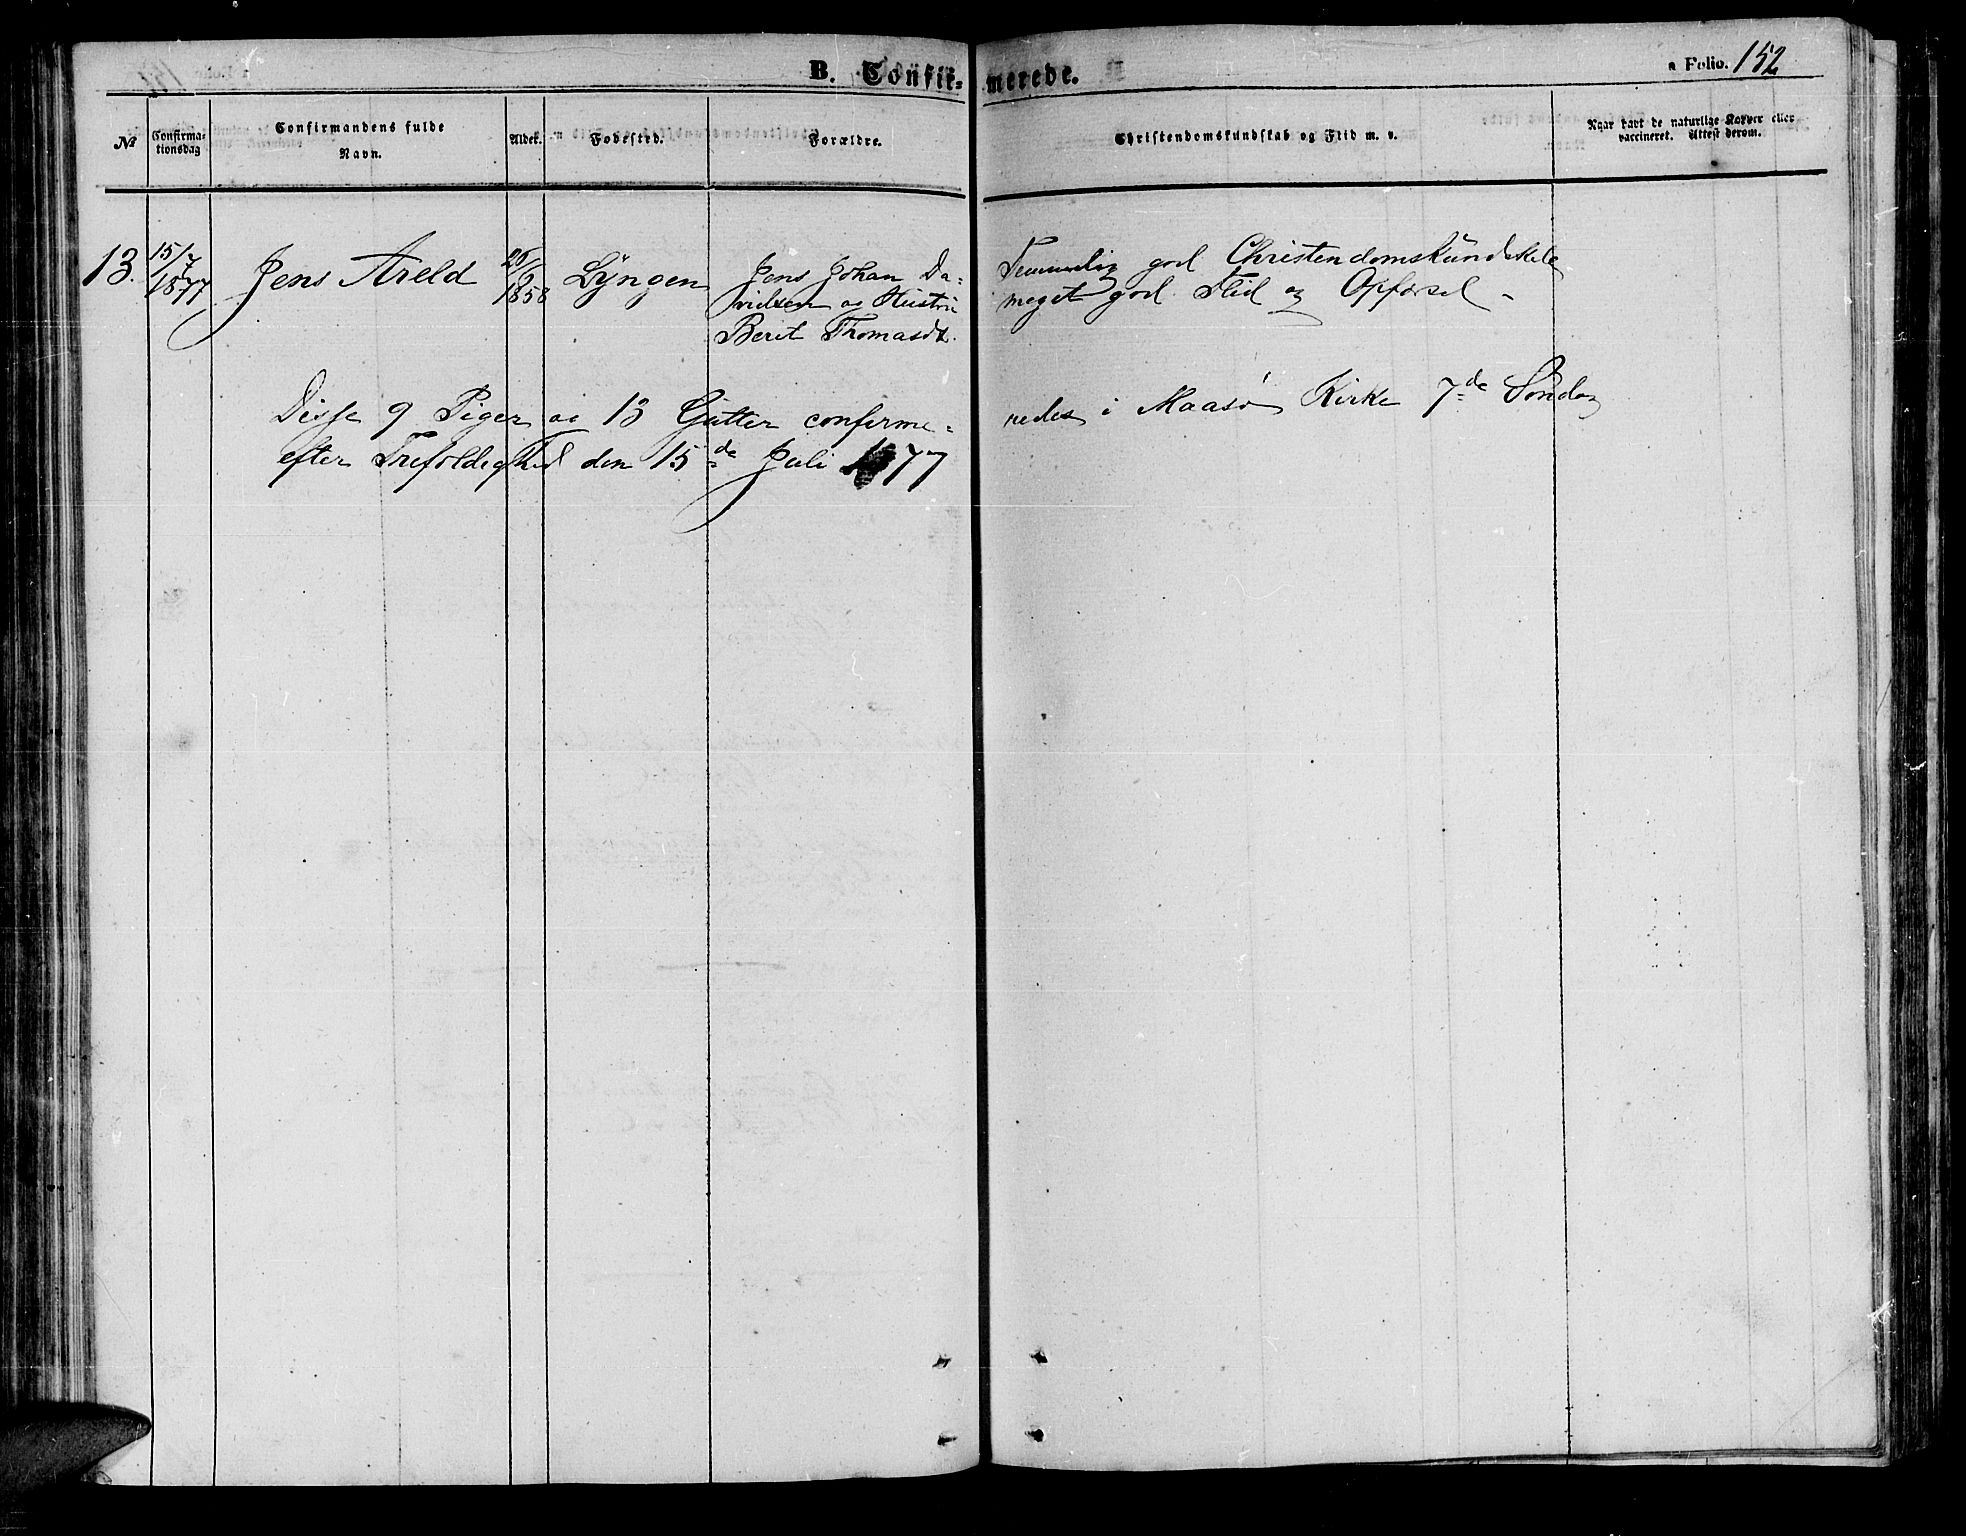 B. Confir-merede.
a Folio. 152
No
Confirma-
tionsdag
Confirmandens fulde
Navn.
Alder.
Fødested.
Forældre.
Christendomskundskab og Flid m. v.
Naar havt de naturlige Kopper eller
vaccineret. Attest derom.
13.
15/7
1877
Jens Areld
1858
Lyngen
Jens Johan Da-
vidsen og Hustru
Beret Thomasdt.
Temmelig god Christendomskundskab
meget god Flid og Opførsel -
Disse 9 Piger og 13 Gutter confirme-
redes i Maasø Kirke 7de Søndag
efter Trefoldighed den 15de Juli 1877